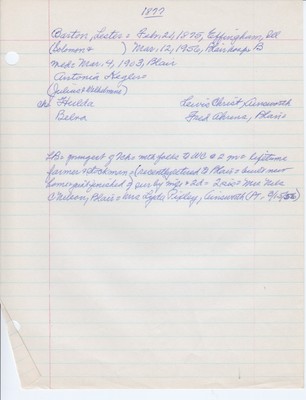 1877
Barton, Lester = Feb. 21, 1875, Effingham, Ill
(Solomon & ) Mar. 12, 1956, Blair hosp B
md = Mar. 4, 1903, Blair
Antonia Kegler
(Julius & Wilhelmina)
ch: Huella Lewis Christ, Ainsworth
Belva Fred Ahrens, Blair
LB = youngest of 7ch = with folks to WC @ 2 mo = lifetime
farmer & stockman = (recently retired to Blair = built new
home = just finished) sur by wife & 2d = 2 sis = Mrs Nels
C Nelson, Blair = Mrs Lydia Ripley, Ainsworth (Pt - 3/15/56)